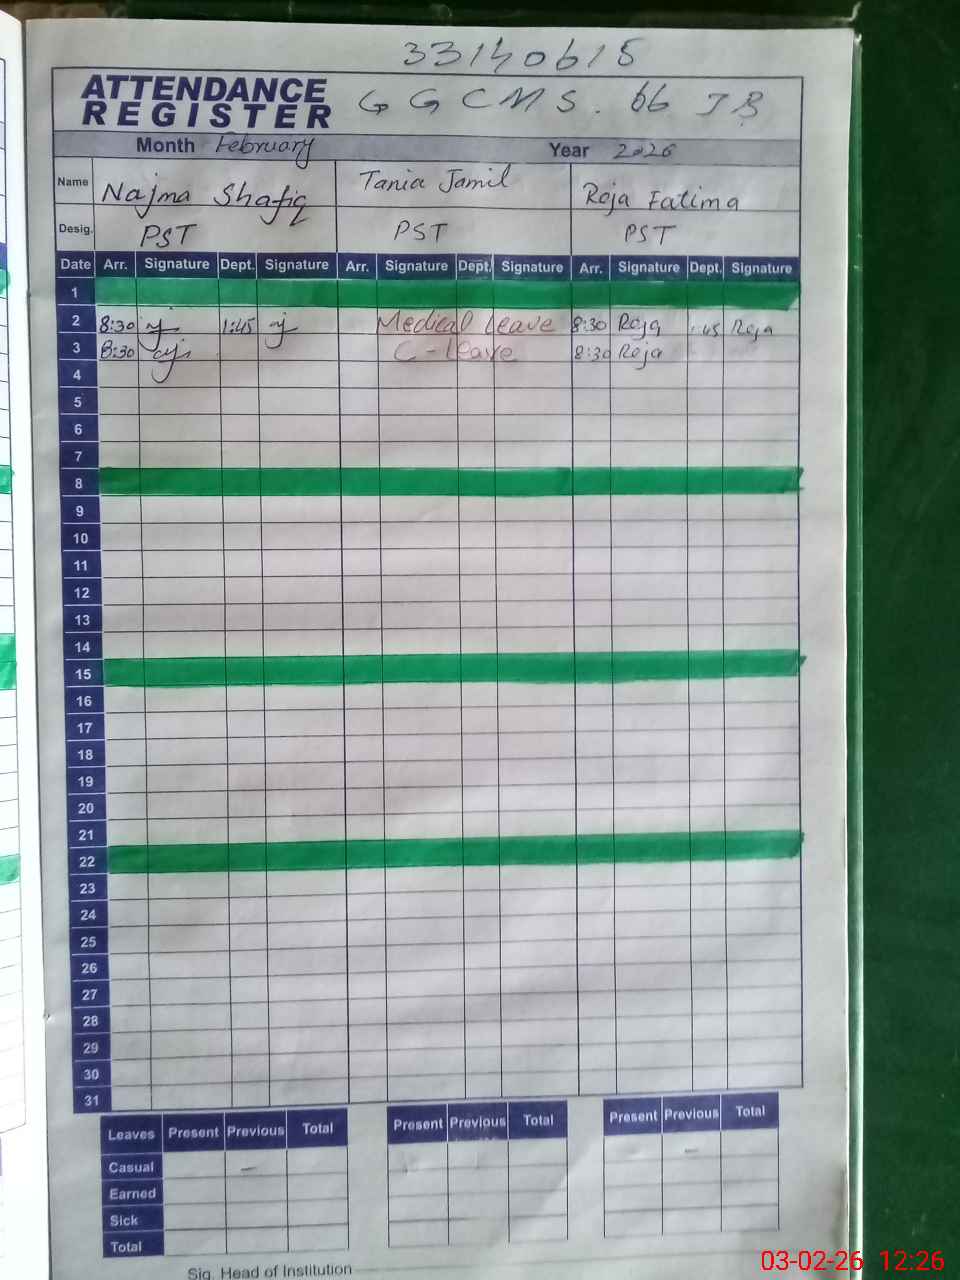 33140615
ATTENDANCE
REGISTER
G G C M S . 66 J B
Month February Year 2026
Name Najma Shafiq Tania Jamil Roja Fatima
Desig. PST PST PST
Date Arr. Signature Dept. Signature Arr. Signature Dept. Signature Arr. Signature Dept. Signature
1
2 8:30 1:45 Medical Leave 8:30 Roja 1:45 Roja
3 8:30 C-Leave 8:30 Roja
4
5
6
7
8
9
10
11
12
13
14
15
16
17
18
19
20
21
22
23
24
25
26
27
28
29
30
31
Leaves Present Previous Total Present Previous Total Present Previous Total
Casual – –
Earned
Sick
Total
Sig. Head of Institution
03-02-26 12:26